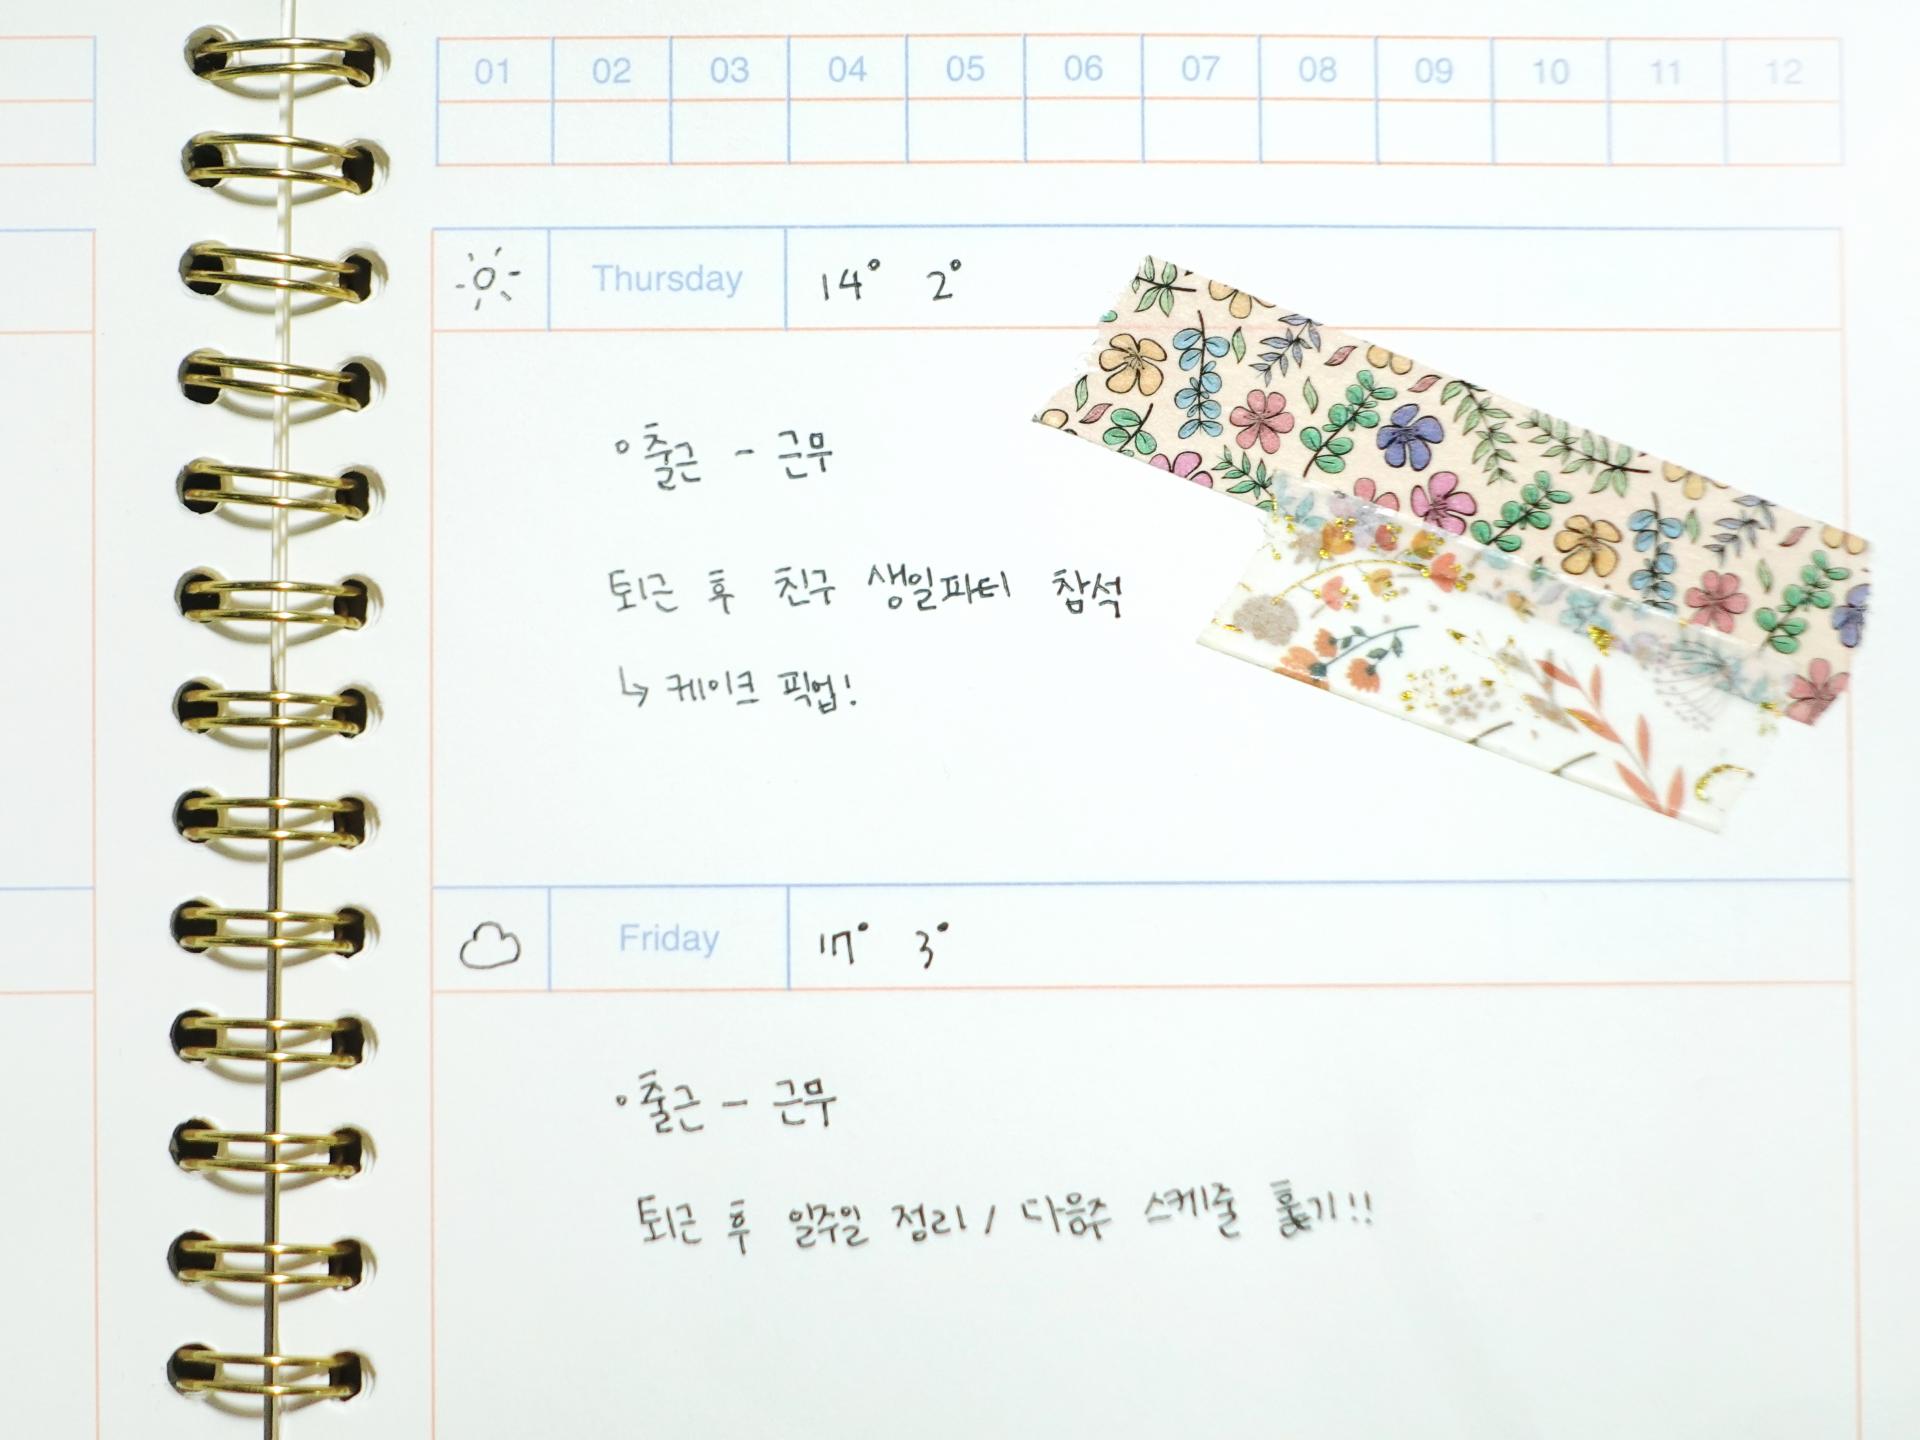 01 02 03 04 05 06 07 08 09 10 11 12
Thursday 14° 2°
출근 - 근무
퇴근 후 친구 생일파티 참석
↳ 케이크 픽업!
Friday 17° 3°
출근 - 근무
퇴근 후 일주일 정리 / 다음주 스케줄 훑기!!